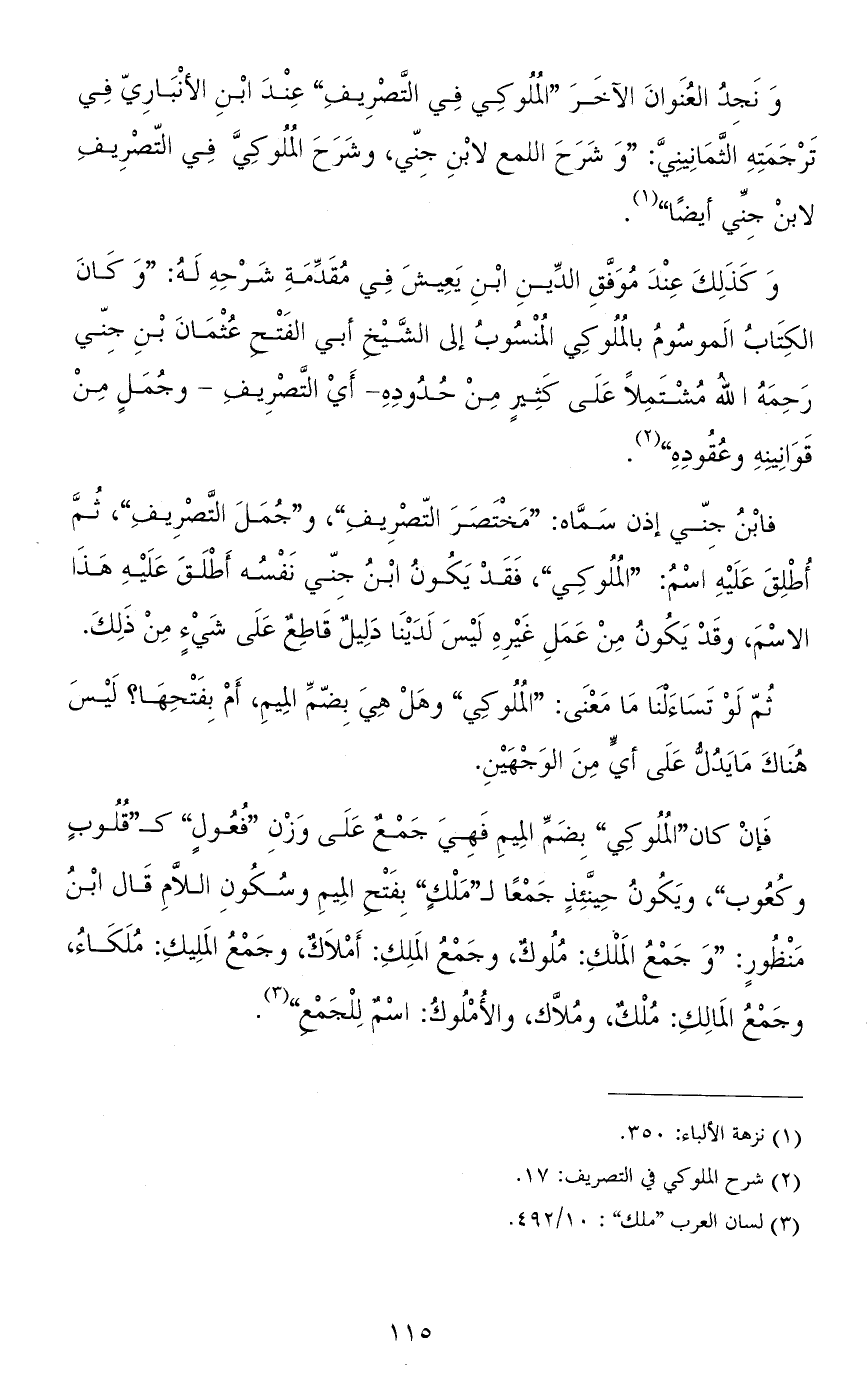 وَ نَجِدُ العُنوانَ الآخَرَ ”المُلُوكي فِي التَّصْرِيفِ“ عِنْدَ ابْنِ الأنْبَاريّ فِي
تَرْجَمَتِهِ الثَّمَانِينِيَّ: ”وَ شَرَحَ اللمع لابْنِ جنّي، وشَرَحَ المُلُوكيَّ فِي التّصْرِيفِ
لابنْ جِنّي أيضًا“(١).
وَ كَذَلِكَ عِنْدَ مُوَفَّقِ الدِّينِ ابْنِ يَعِيشَ فِي مُقَدِّمَةِ شَرْحِهِ لَهُ: ”وَ كَانَ
الكِتَابُ الَموسُومُ بالمُلُوكي المَنْسُوبُ إلى الشَّيْخِ أبي الفَتْحِ عُثْمَانَ بْنِ جِنّي
رَحِمَهُ اللهُ مُشْتَمِلاً عَلَى كَثِيرٍ مِنْ حُدُودِهِ- أَيْ التَّصْرِيفِ - وجُمَلٍ مِنْ
قَوَانِينِهِ وعُقُودِهِ“(٢).
فابْنُ جِنّي إذن سَمَّاه: ”مَخْتَصَرَ التّصْرِيفِ“، و”جُمَلَ التَّصْرِيفِ“، ثُمَّ
أُطْلِقَ عَلَيْهِ اسْمُ: ”المُلُوكِي“، فَقَدْ يَكُونُ ابْنُ جنّي نَفْسُه أَطْلَقَ عَلَيْهِ هَذَا
الاسْمَ، وقَدْ يَكُونُ مِنْ عَمَلِ غَيْرِهِ لَيْسَ لَدَيْنَا دَلِيلٌ قَاطِعٌ عَلَى شَيْءٍ مِنْ ذَلِكَ.
ثُمّ لَوْ تَسَاءَلْنَا مَا مَعْنَى: ”المُلُوكِي“ وهَلْ هِيَ بِضمِّ المِيمِ، أَمْ بِفَتْحِهَا؟ لَيْسَ
هُنَاكَ مَايَدُلُّ عَلَى أيٍّ مِنَ الوَجْهَيْنِ.
فَإنْ كان”المُلُوكي“ بِضَمِّ المِيمِ فَهِيَ جَمْعٌ عَلَى وَزْنِ ”فُعُولٍ“ كـ”قُلُوبٍ
وكُعُوب“، ويَكُونُ حِينَئِذٍ جَمْعًا لـ”مَلْكٍ“ بِفَتْحِ المِيمِ وسُكُونِ اللاَّمِ قَال ابْنُ
مَنْظُورٍ: ”وَ جَمْعُ المَلْكِ: مُلُوكٌ، وجَمْعُ المَلِكِ: أَمْلاَكٌ، وجَمْعُ المَلِيكِ: مُلَكَاءُ،
وجَمْعُ المَالِكِ: مُلْكٌ، ومُلاَّك، والأُمْلُوكُ: اسْمٌ لِلْجَمْعِ“(٣).
(١) نزهة الألباء: ٣٥٠.
(٢) شرح الملوكي في التصريف: ١٧.
(٣) لسان العرب ”ملك“ : ٤٩٢/١٠.
١١٥